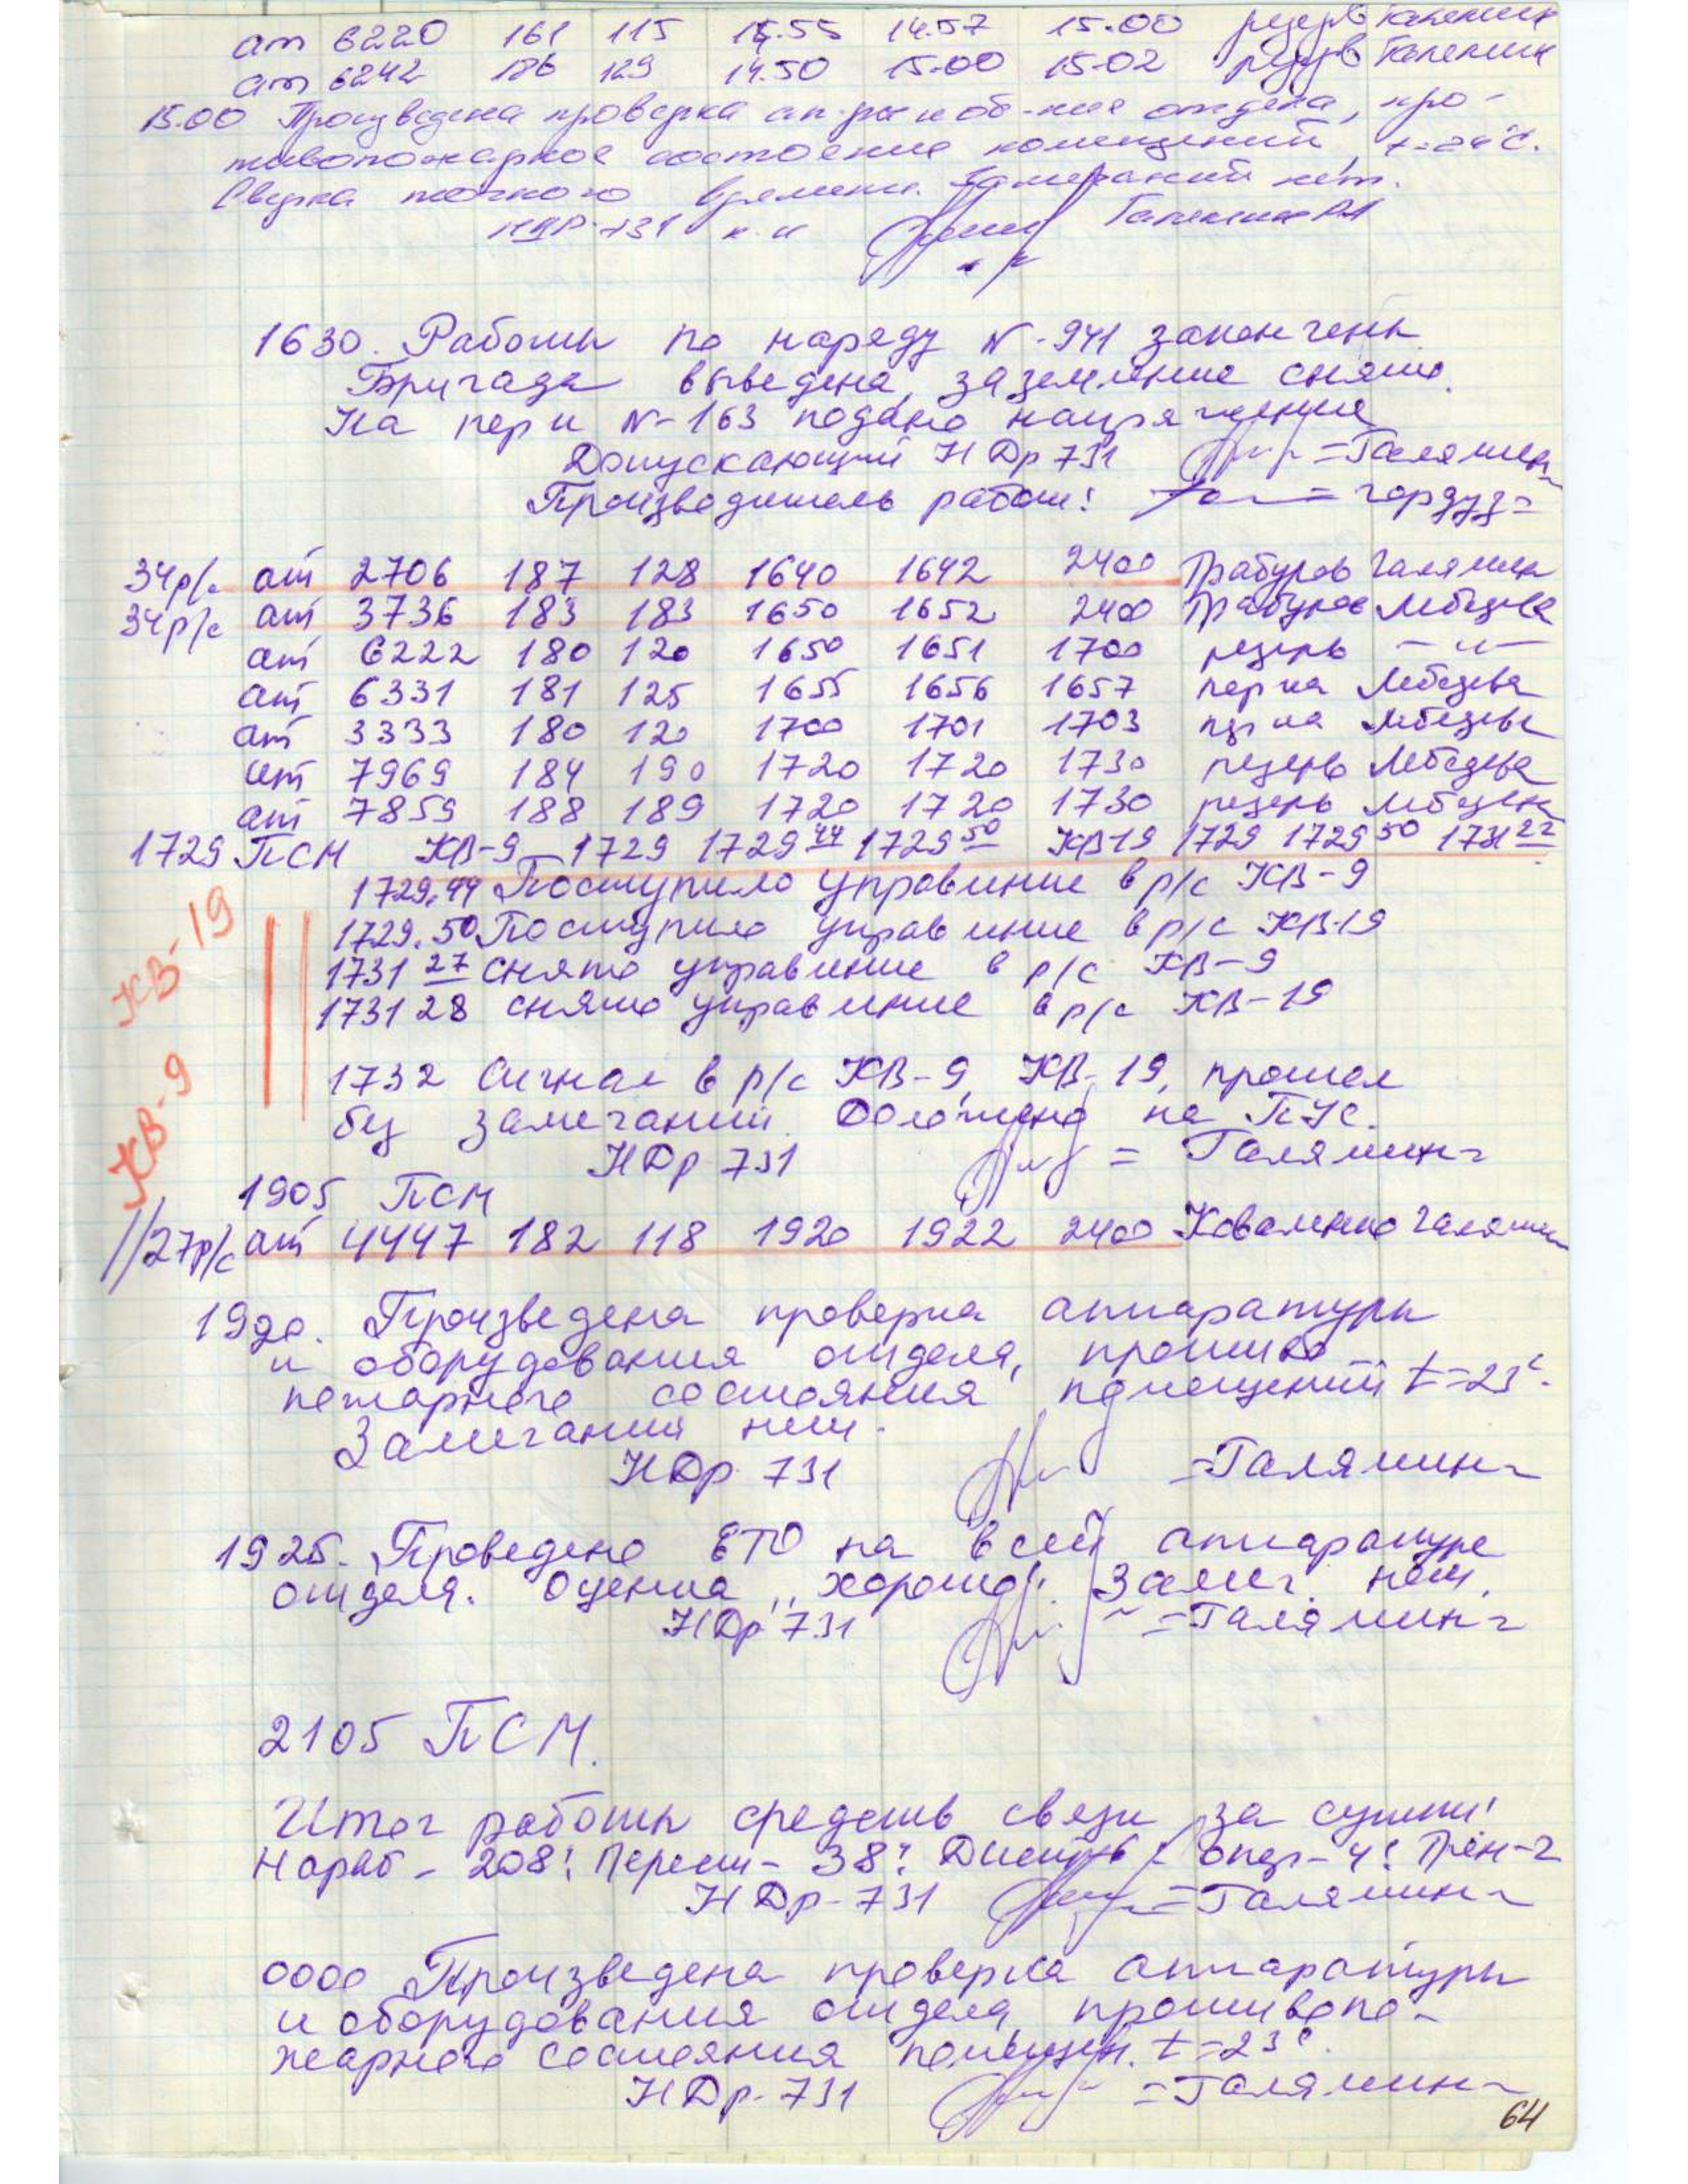 ат 6220 161 115 14.55 14.57 15.00 резерв Галямин
ат 6242 186 129 14.50 15.00 15.02 резерв Галямин
15.00 Произведена проверка ап-ры и об-ния отдела, про-
тивопожарное состояние помещений, t=24°C.
Сверка точного времени. Замечаний нет.
НДР-731 к-н Галямин
1630. Работы по наряду N-941 закончены
Бригада выведена, заземление снято.
На перд N-163 подано напряжение
Допускающий НДр 731 =Галямин
Производитель работ:
34р/с ат 2706 187 128 1640 1642 2400 Трабуров Галямин
34р/с ат 3736 183 183 1650 1652 2400 Трабуров Лебедева
ат 6222 180 120 1650 1651 1700 резерв —"—
ат 6331 181 125 1655 1656 1657 Лебедева
ат 3333 180 120 1700 1701 1703 Лебедева
ат 7969 184 190 1720 1720 1730 резерв Лебедева
ат 7859 188 189 1720 1720 1730 резерв Лебедева
1729 ПСМ ЖВ-9 1729 1729 44 1729 50 ЖВ19 1729 1729 50 1731 27
1729.44 Поступило управление в р/с ЖВ-9
1729.50 Поступило управление в р/с ЖВ-19
ЖВ-19
1731 27 снято управление в р/с ЖВ-9
1731 28 снято управление в р/с ЖВ-19
ЖВ-9
1732 Сигнал в р/с ЖВ-9, ЖВ-19, прошел
без замечаний. Доложено на ПУС.
НДр 731 = Галямин
1905 ПСМ
//27р/с ат 4447 182 118 1920 1922 2400 Коваленко Галямин
1920. Произведена проверка аппаратуры
и оборудования отдела, противо
пожарного состояния помещений t=23°.
Замечаний нет.
НДр 731 =Галямин
1925. Проведено ЕТО на всей аппаратуре
отдела. Оценка „хорошо". Замеч. нет.
НДр 731 =Галямин
2105 ПСМ.
Итог работы средств связи за сутки:
Нараб - 208: Перест - 38: опер-4: Трен-2
НДр-731 =Галямин
0000 Произведена проверка аппаратуры
и оборудования отдела противопо-
жарного состояния помещен. t=23°.
НДр-731 =Галямин
64